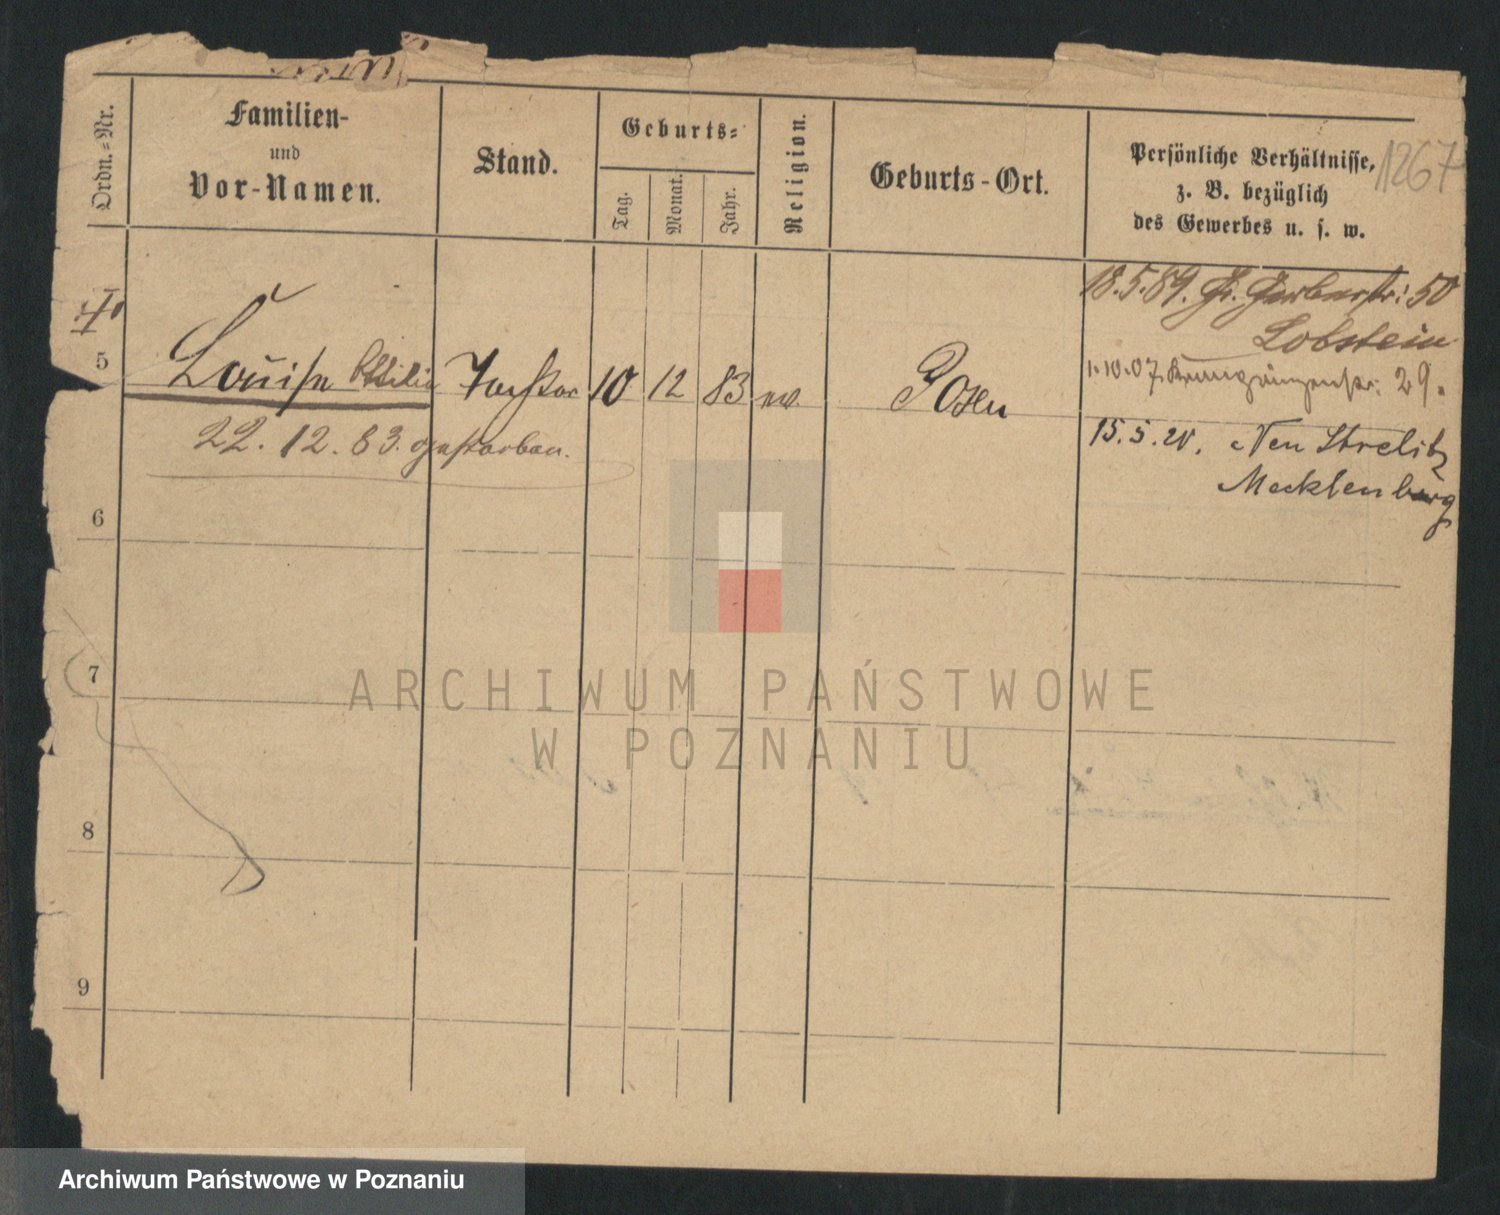 Ordn.=Nr.
Familien-
und
Vor-Namen.
Stand.
Geburts=
Tag.
Monat.
Jahr.
Religion.
Geburts-Ort.
Persönliche Verhältnisse,
z. B. bezüglich
des Gewerbes u. s. w.
1267
18.5.89. Gr. Gerberstr: 50
Lobstein
5
Louise Ottilie Tochter 10 12 83 ev. Posen
1.10.07. 29.
22.12.83. gestorben.
15.5.20. Neu Strelitz
Mecklenburg
6
7
8
9
ARCHIWUM PAŃSTWOWE
W POZNANIU
Archiwum Państwowe w Poznaniu